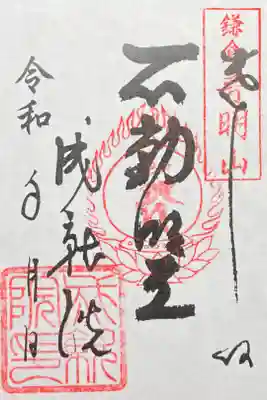 鎌倉普明山
不動明王
成就院
令和 年 月 日
成就院印